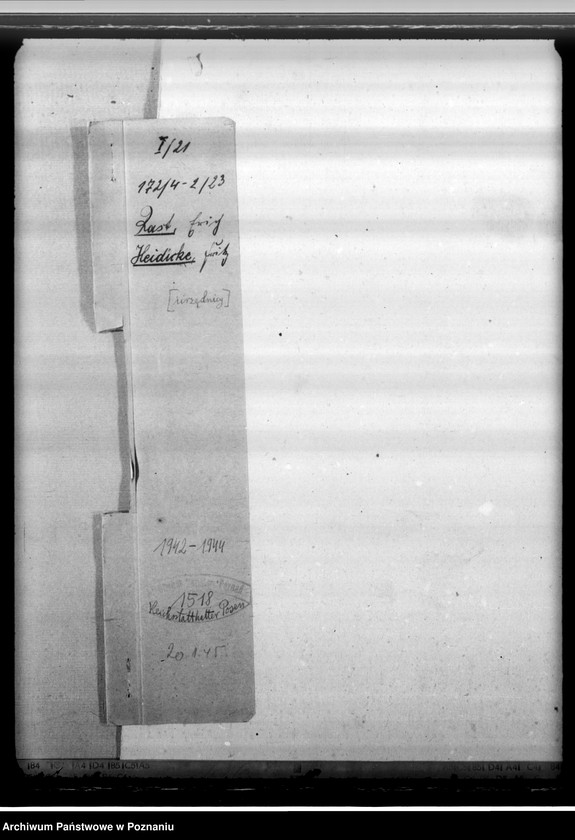 I/21
172/4-2/23
Rast, Erich
Heidicke, Fritz
[urzędnicy]
1942-1944
1518
Reichsstatthalter Posen
20.1.45
Archiwum Państwowe w Poznaniu